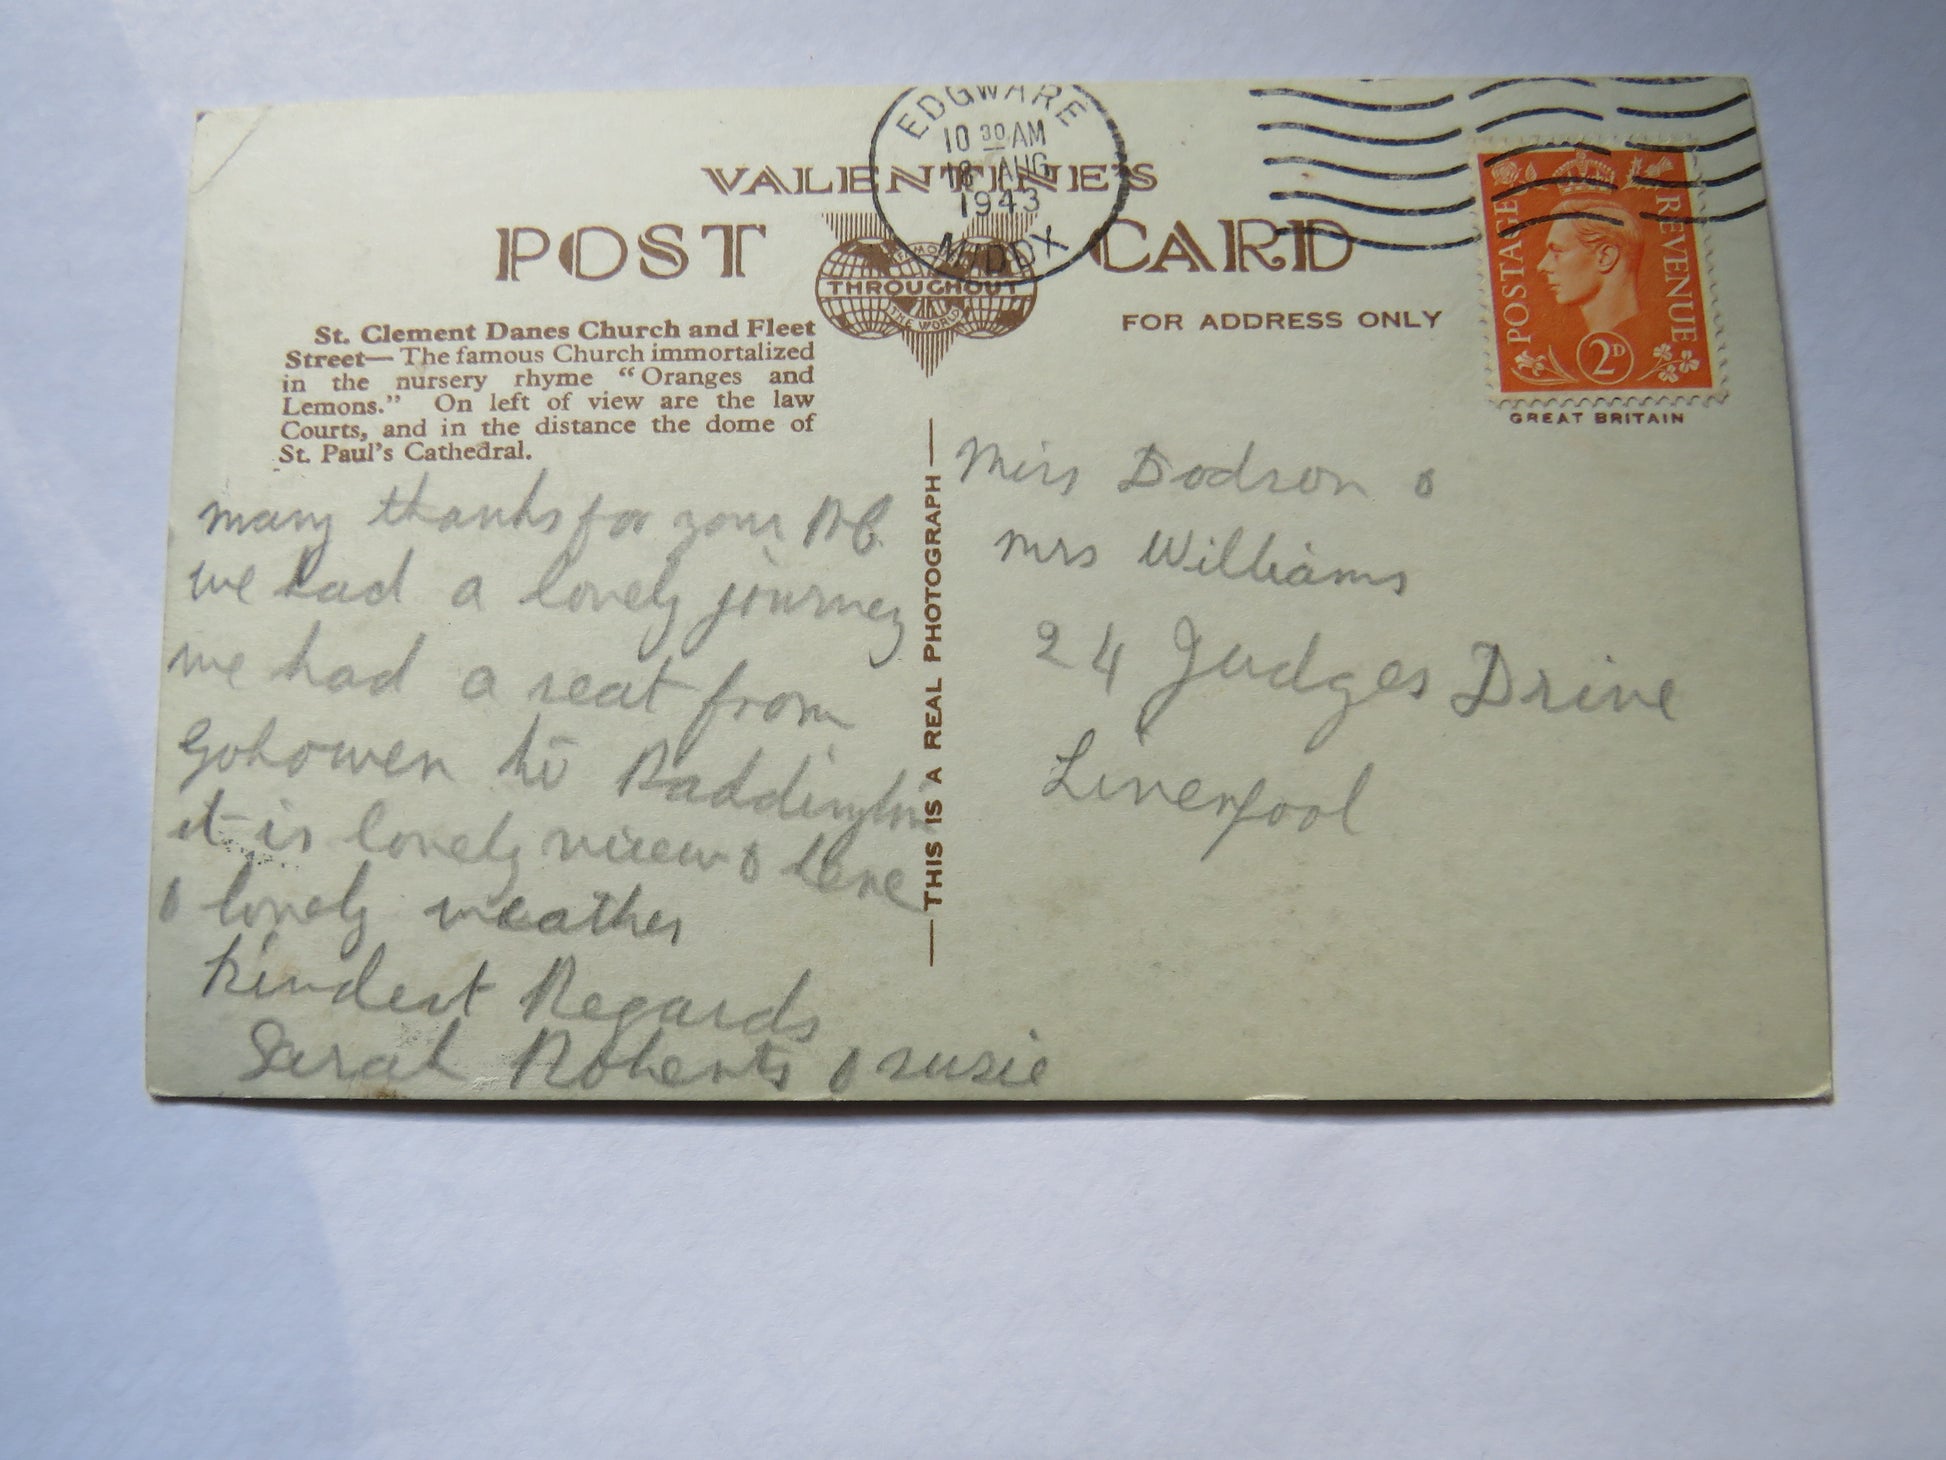 EDGWARE
10 30 AM
18 AUG
1943
MIDDX
VALENTINE'S
POST CARD
FAMOUS
THROUGHOUT
THE WORLD
FOR ADDRESS ONLY
POSTAGE
REVENUE
2D
GREAT BRITAIN
St. Clement Danes Church and Fleet
Street— The famous Church immortalized
in the nursery rhyme "Oranges and
Lemons." On left of view are the law
Courts, and in the distance the dome of
St. Paul's Cathedral.
many thanks for your P.C.
we had a lovely journey
we had a seat from
Gobowen to Paddington
it is lovely view & here
& lovely weather
Kindest Regards
Sarah Roberts & Susie
THIS IS A REAL PHOTOGRAPH
Miss Dodson &
Mrs Williams
24 Judges Drive
Liverpool